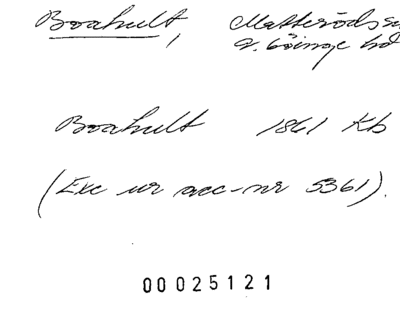 Boahult, Matteröds
V. Göinge hd
Boahult 1861 Kb
(Exc ur acc-nr 5361).
00025121